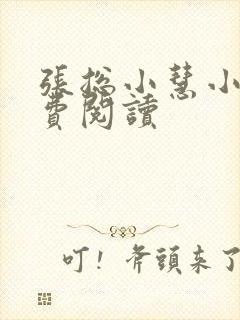 張總小慧小
費閱讀
叮！斧頭来了